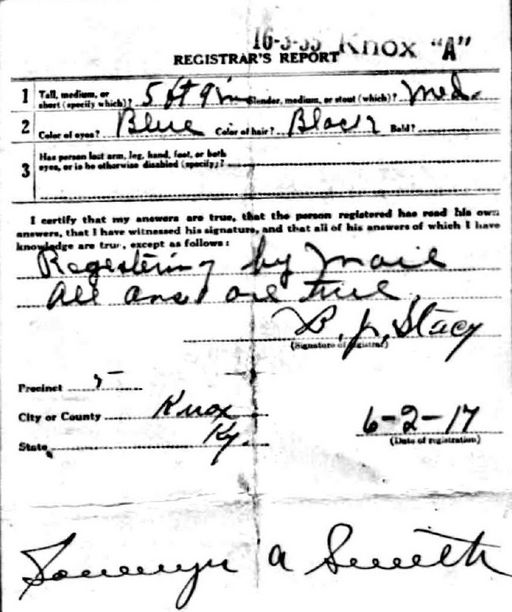 16-3-35 Knox "A"
REGISTRAR'S REPORT
1 Tall, medium, or short (specify which)? 5 ft 9 in Slender, medium, or stout (which)? Med.
2 Color of eyes? Blue Color of hair? Black Bald?
3 Has person lost arm, leg, hand, foot, or both
eyes, or is he otherwise disabled (specify)?
I certify that my answers are true, that the person registered has read his own
answers, that I have witnessed his signature, and that all of his answers of which I have
knowledge are true, except as follows:
Registering by mail
All ans are true.
B. J. Stacy
(Signature of registrar)
Precinct 5
City or County Knox
State Ky.
6-2-17
(Date of registration)
A Smith